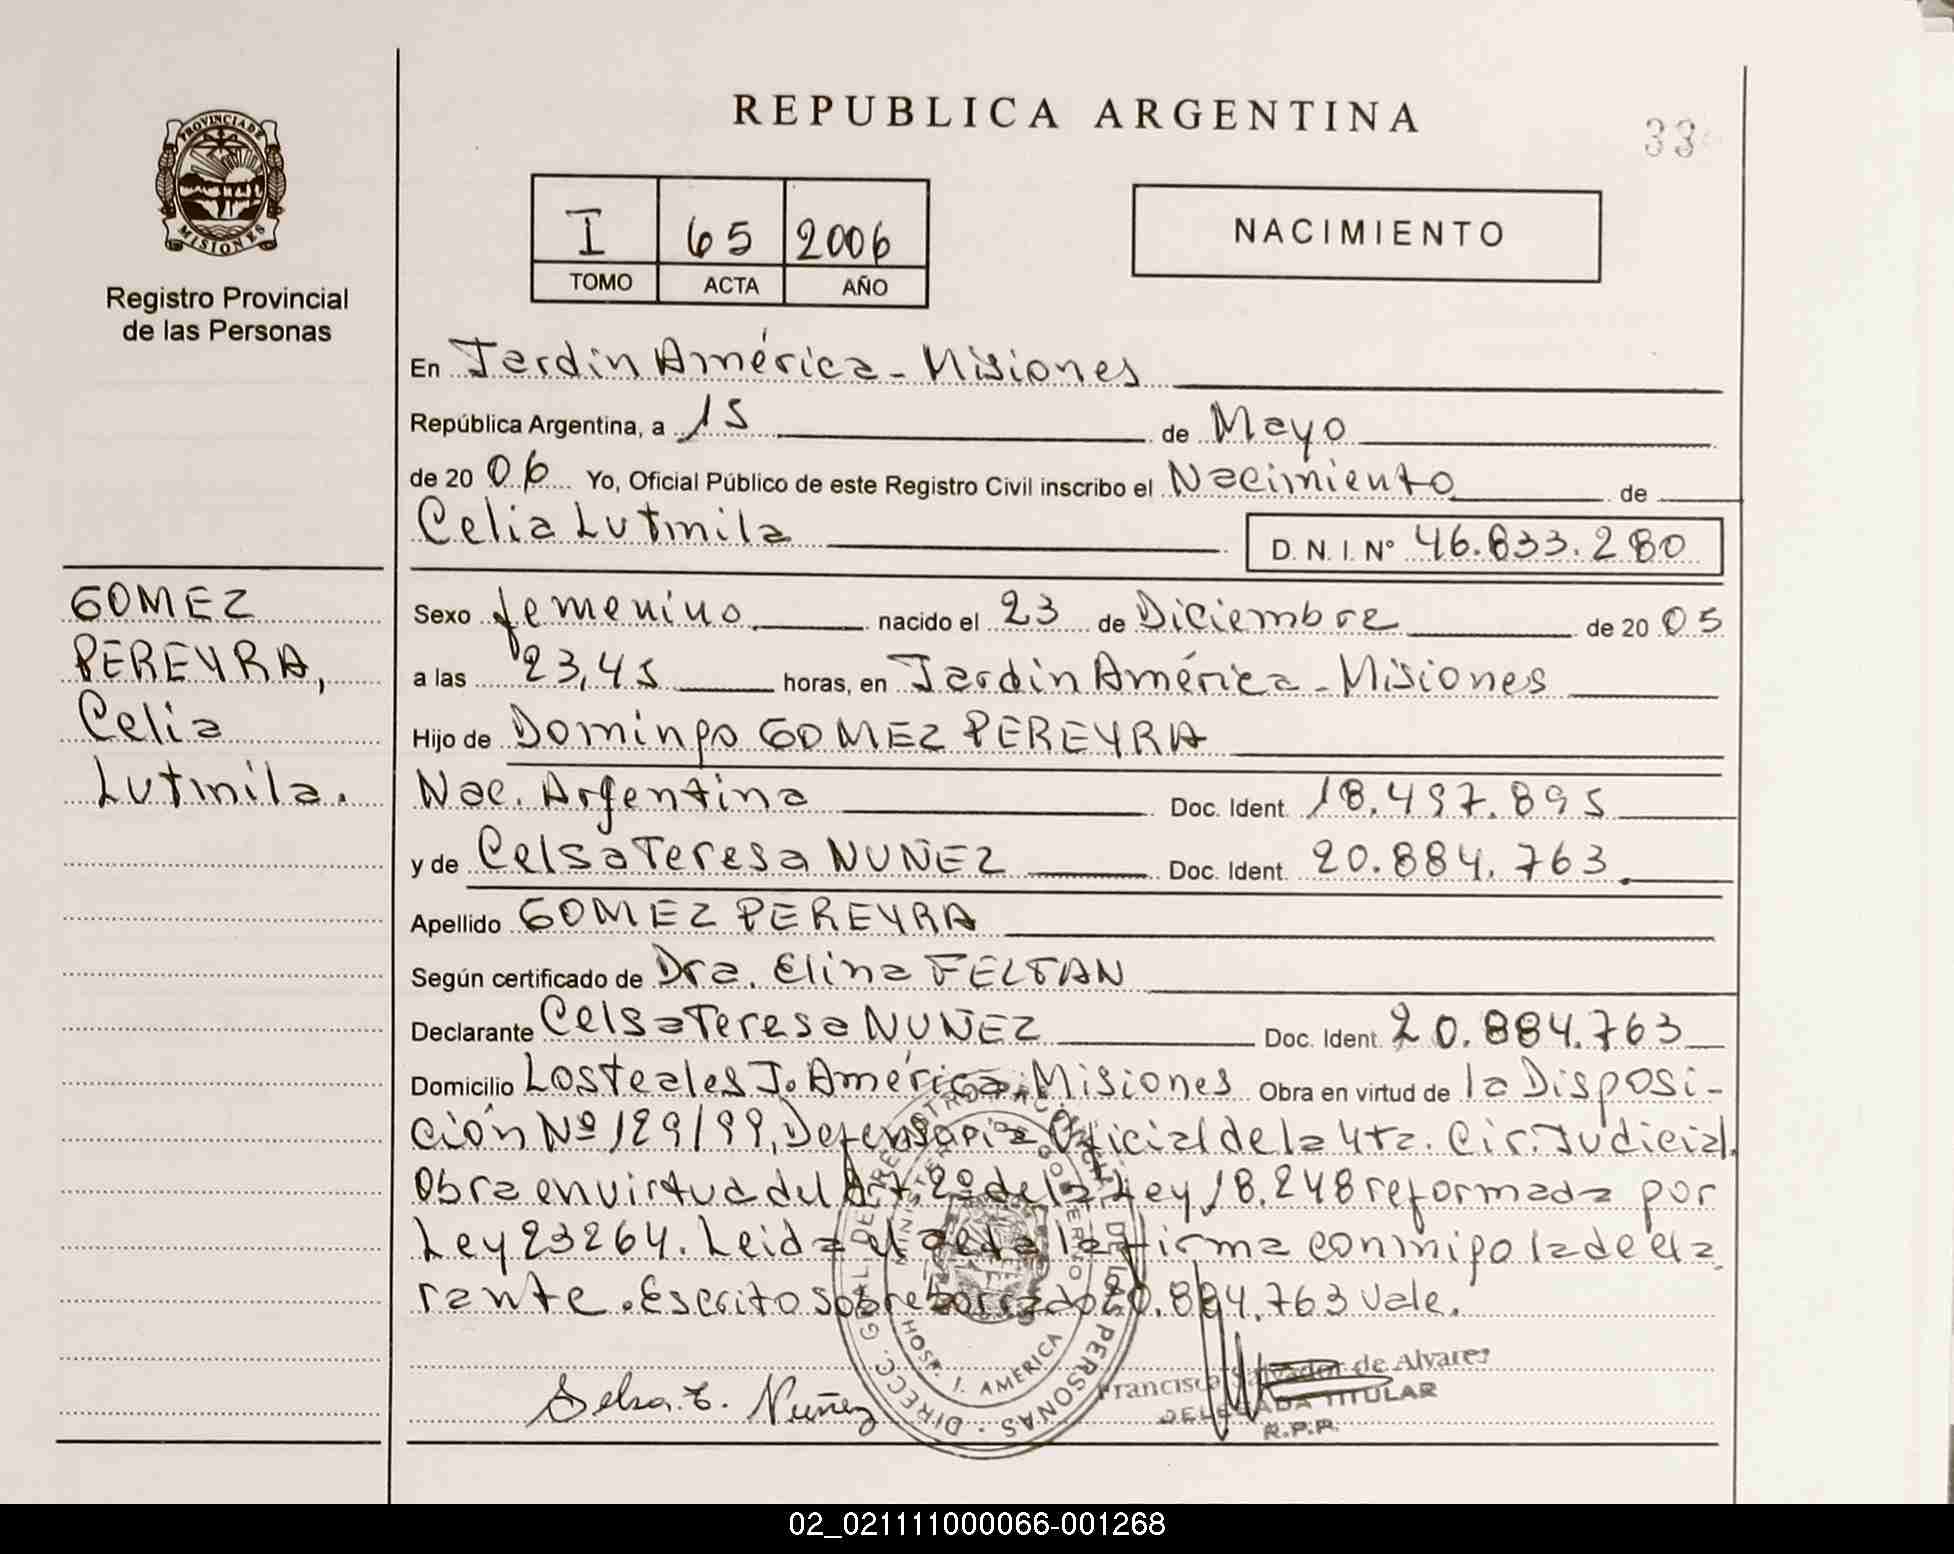 REPUBLICA ARGENTINA
33
PROVINCIA DE MISIONES
Registro Provincial
de las Personas
I 65 2006
TOMO ACTA AÑO
NACIMIENTO
En Jardín América - Misiones
República Argentina, a 15 de Mayo
de 20 06 Yo, Oficial Público de este Registro Civil inscribo el Nacimiento de
Celia Lutmila D. N. I. Nº 46.833.280
GOMEZ
PEREYRA,
Celia
Lutmila.
Sexo femenino nacido el 23 de Diciembre de 20 05
a las 23,45 horas, en Jardín América - Misiones
Hijo de Domingo GOMEZ PEREYRA
Nac. Argentina Doc. Ident. 18.497.895
y de Celsa Teresa NUÑEZ Doc. Ident. 20.884.763
Apellido GOMEZ PEREYRA
Según certificado de Dra. Elina FELTAN
Declarante Celsa Teresa NUÑEZ Doc. Ident. 20.884.763
Domicilio Los teales J. América, Misiones Obra en virtud de la Disposi-
ción Nº 129/99, Defensoría Oficial de la 4ta. Cir. Judicial.
Obra en virtud del Art 2º de la Ley 18.248 reformada por
Ley 23264. Leida el acta la firma conmigo la decla
rante. Escrito sobre borrado 20.884.763 Vale.
DIRECC. GRAL DEL REGISTRO PROVINCIAL DE LAS PERSONAS
MINISTERIO DE GOBIERNO
HOSP. J. AMERICA
Celsa T. Nuñez
Francisca Salvador de Alvarez
DELEGADA TITULAR
R.P.P.
02_021111000066-001268